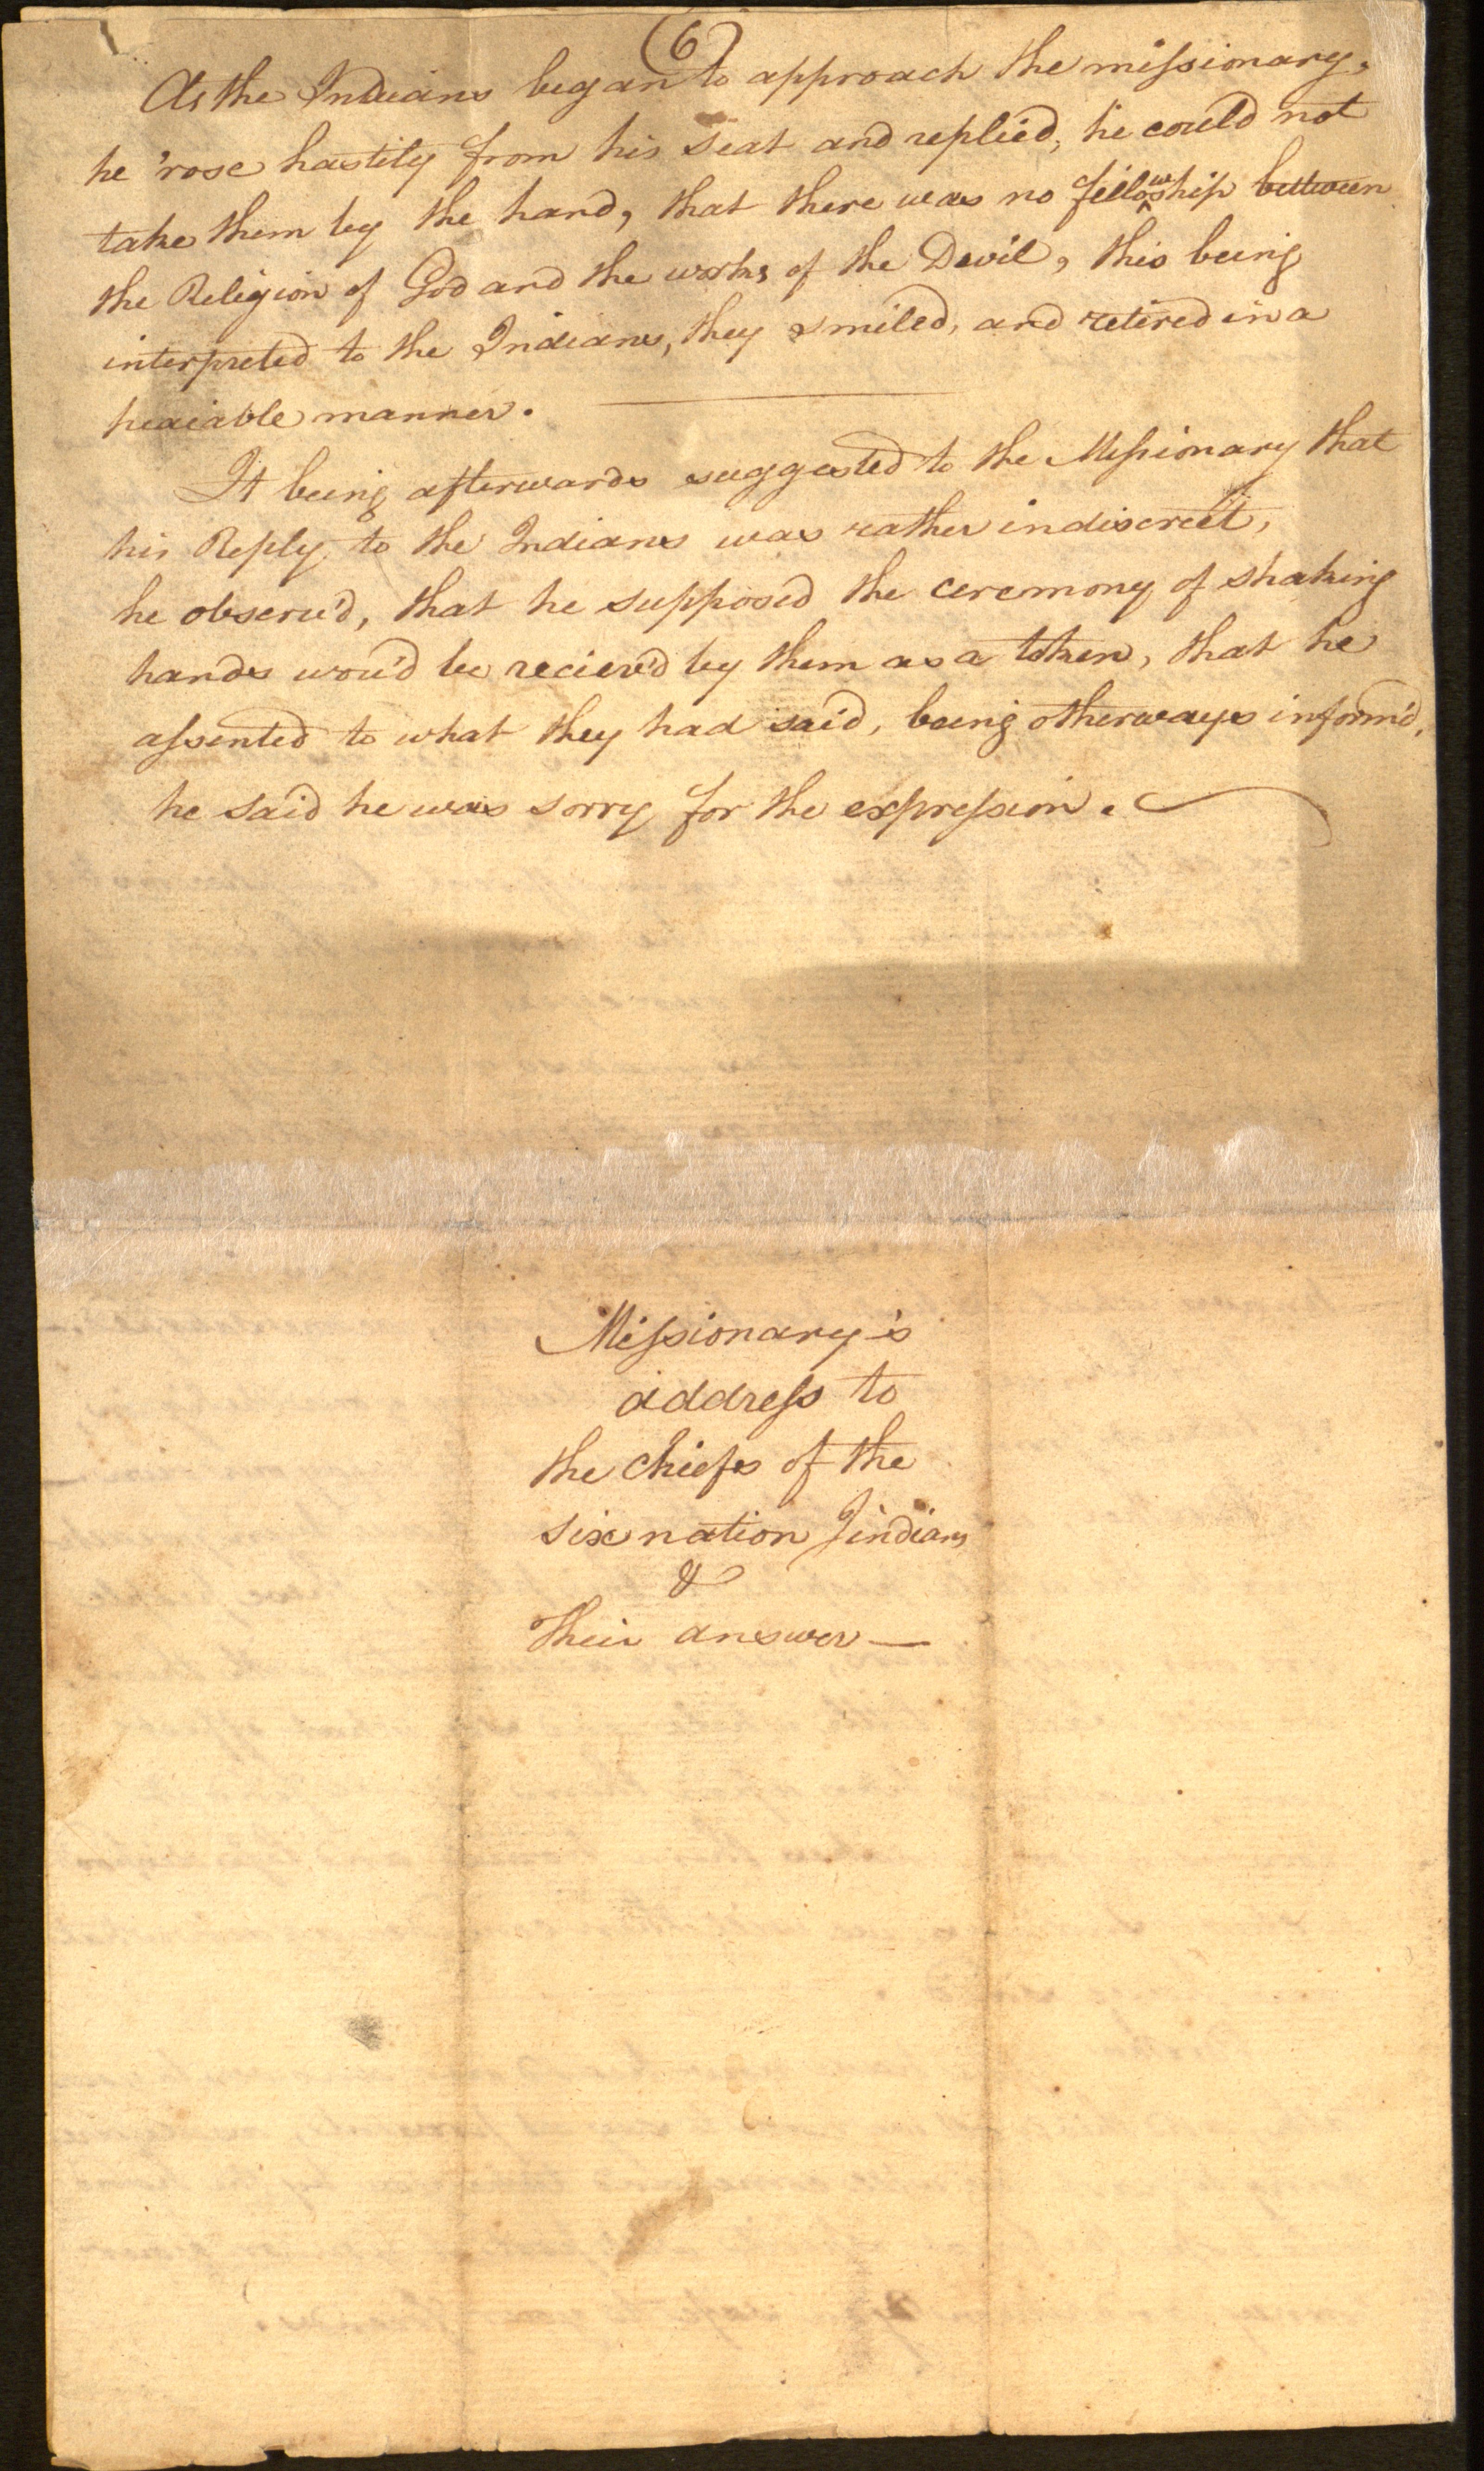 (6)
As the Indians began to approach the missionary,
he 'rose hastily from his Seat and replied, he could not
take them by the hand, that there was no fellowship between
the Religion of God and the works of the Devil, this being
interpreted to the Indians, they smiled, and retired in a
peaceable manner.
It being afterwards suggested to the Missionary that
his Reply to the Indians was rather indiscreet,
he observ'd, that he supposed the ceremony of shaking
hands wou'd be reciev'd by them as a token, that he
assented to what they had said, being otherways inform'd,
he said he was sorry for the expression.
Missionary's
address to
the chiefs of the
six nation Indians
&
Their answer—